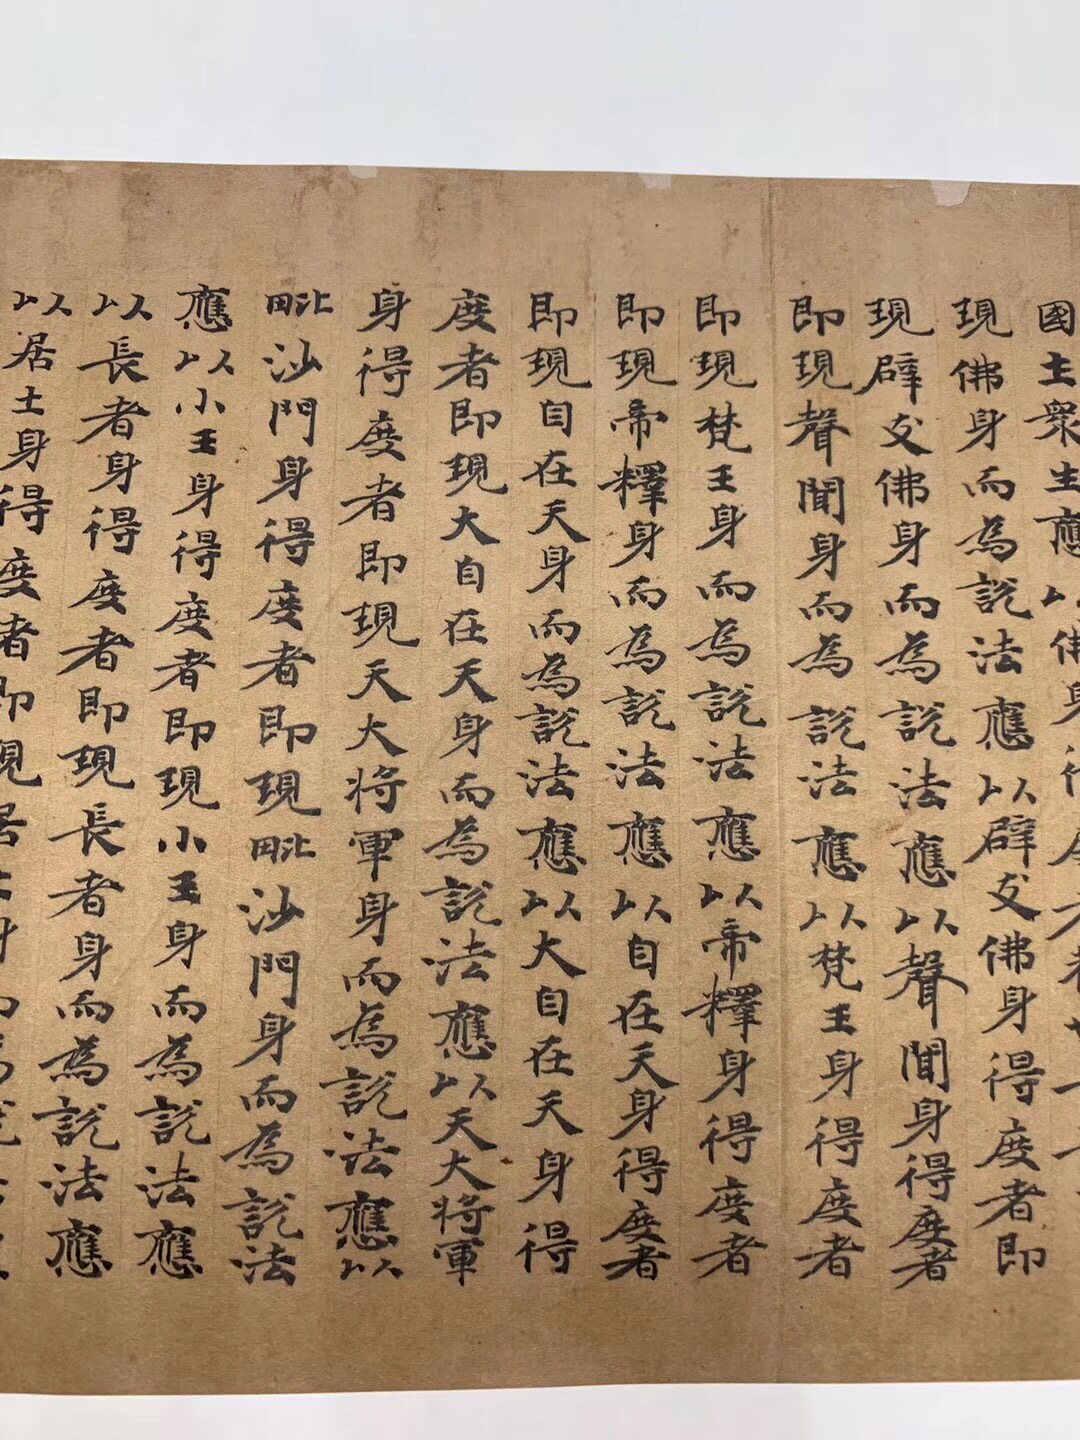 國土衆生應以佛身
現佛身而為說法應以辟支佛身得度者即
現辟支佛身而為說法應以聲聞身得度者
即現聲聞身而為說法應以梵王身得度者
即現梵王身而為說法應以帝釋身得度者
即現帝釋身而為說法應以自在天身得度者
即現自在天身而為說法應以大自在天身得
度者即現大自在天身而為說法應以天大將軍
身得度者即現天大將軍身而為說法應以
毗沙門身得度者即現毗沙門身而為說法
應以小王身得度者即現小王身而為說法應
以長者身得度者即現長者身而為說法應
以居士身得度者即現居士身而為說